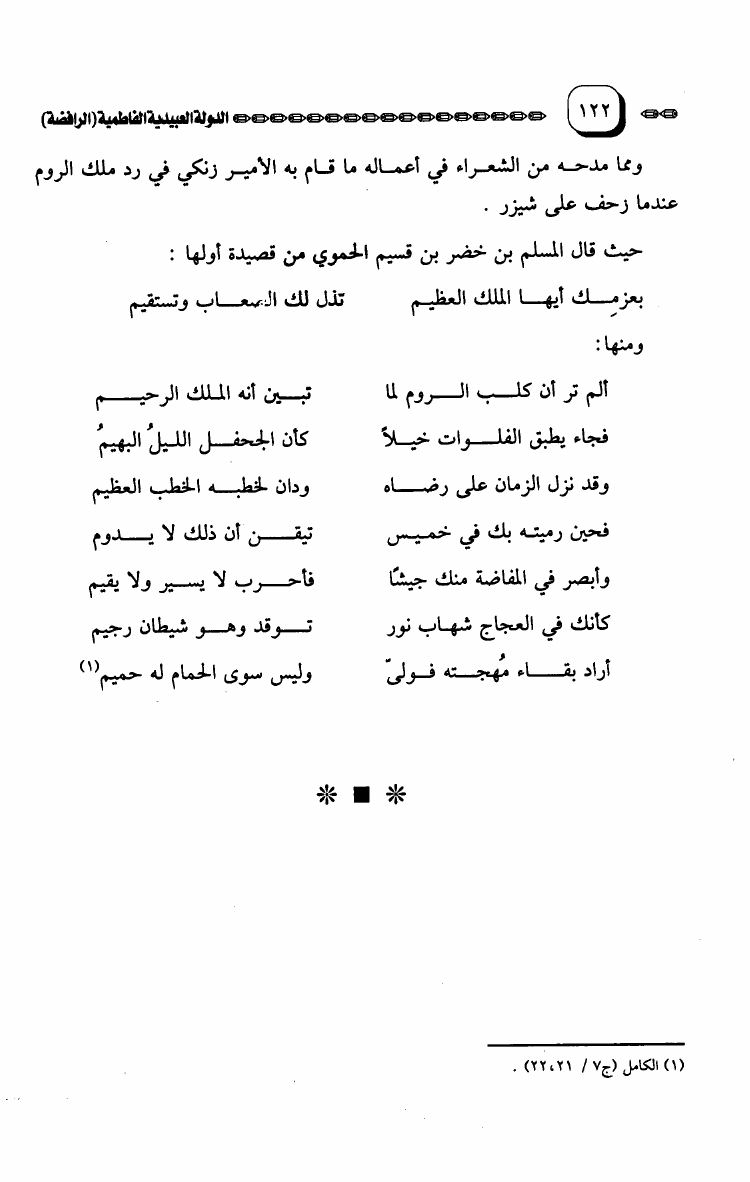 ١٢٢ الدولة العبيدية الفاطمية (الرافضة)
ومما مدحه من الشعراء في أعماله ما قام به الأمير زنكي في رد ملك الروم
عندما زحف على شيزر .
حيث قال المسلم بن خضر بن قسيم الحموي من قصيدة أولها :
بعزمِك أيها الملك العظيم تذل لك الصعاب وتستقيم
ومنها:
ألم تر أن كلب الروم لما تبين أنه الملك الرحيم
فجاء يطبق الفلوات خيلاً كأن الجحفل الليلُ البهيمُ
وقد نزل الزمان على رضاه ودان لخطبه الخطب العظيم
فحين رميته بك في خميس تيقن أن ذلك لا يدوم
وأبصر في المفاضة منك جيشًا فأحرب لا يسير ولا يقيم
كأنك في العجاج شهاب نور توقد وهو شيطان رجيم
أراد بقاء مُهجته فولىّ وليس سوى الحمام له حميم(١)
(١) الكامل (ج٧ / ٢٢،٢١) .